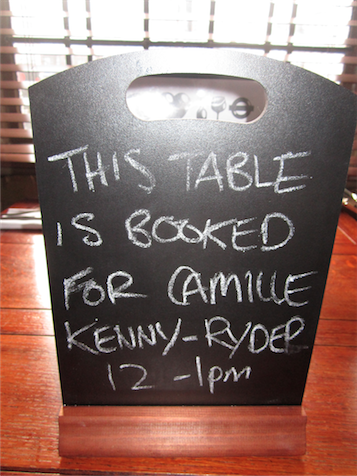 THIS TABLE
IS BOOKED
FOR CAMILLE
KENNY-RYDER
12-1pm